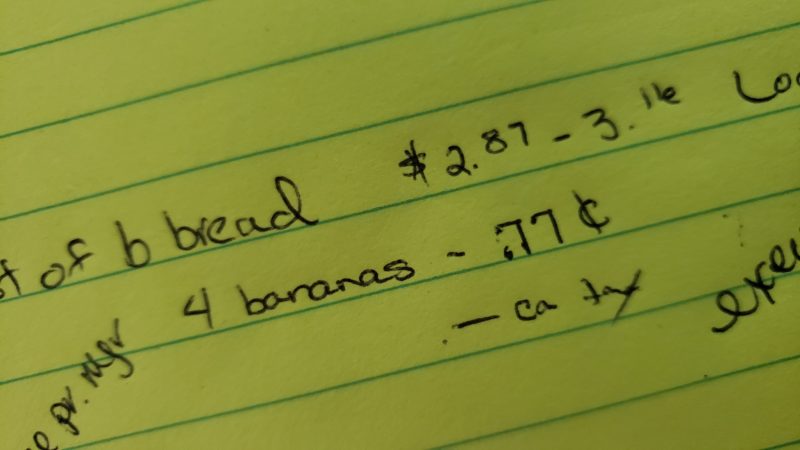 of b bread $2.87 - 3.16
4 bananas - .77¢
- ca tax
pr. mgr